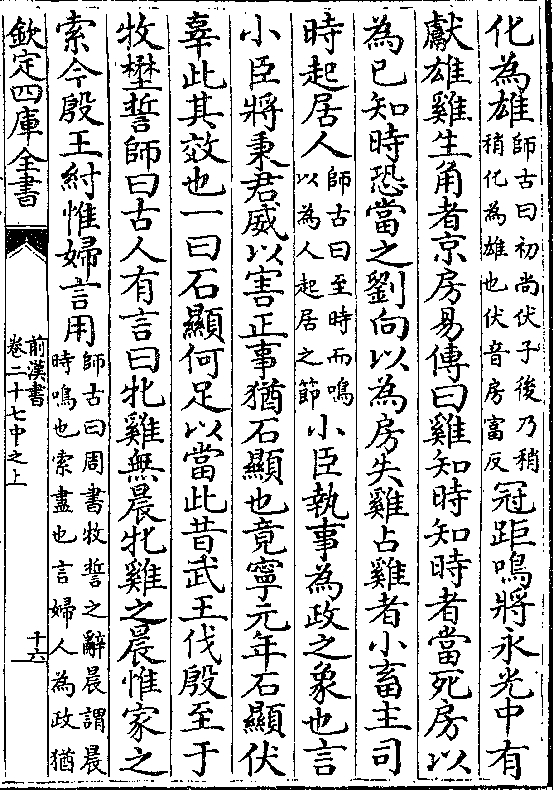 化為雄師古曰初尚伏子後乃稍稍化為雄也伏音房富反冠距鳴將永光中有
獻雄雞生角者京房易傳曰雞知時知時者當死房以
為已知時恐當之劉向以為房失雞占雞者小畜主司
時起居人師古曰至時而鳴以為人起居之節小臣執事為政之象也言
小臣將秉君威以害正事猶石顯也竟寧元年石顯伏
辜此其效也一曰石顯何足以當此昔武王伐殷至于
牧壄誓師曰古人有言曰牝雞無晨牝雞之晨惟家之
索今殷王紂惟婦言用師古曰周書牧誓之辭晨謂晨時鳴也索盡也言婦人為政猶
欽定四庫全書
前漢書
卷二十七中之上
十六